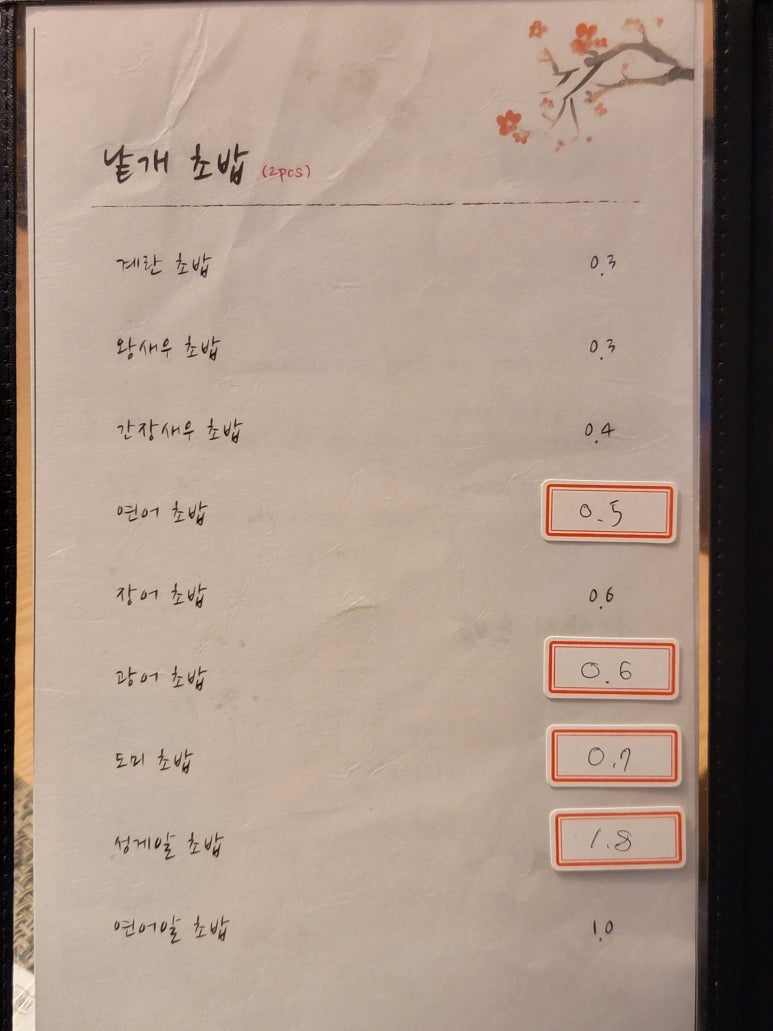 낱개 초밥 (2pcs)
계란 초밥 0.3
왕새우 초밥 0.3
간장새우 초밥 0.4
연어 초밥 0.5
장어 초밥 0.6
광어 초밥 0.6
도미 초밥 0.7
성게알 초밥 1.8
연어알 초밥 1.0